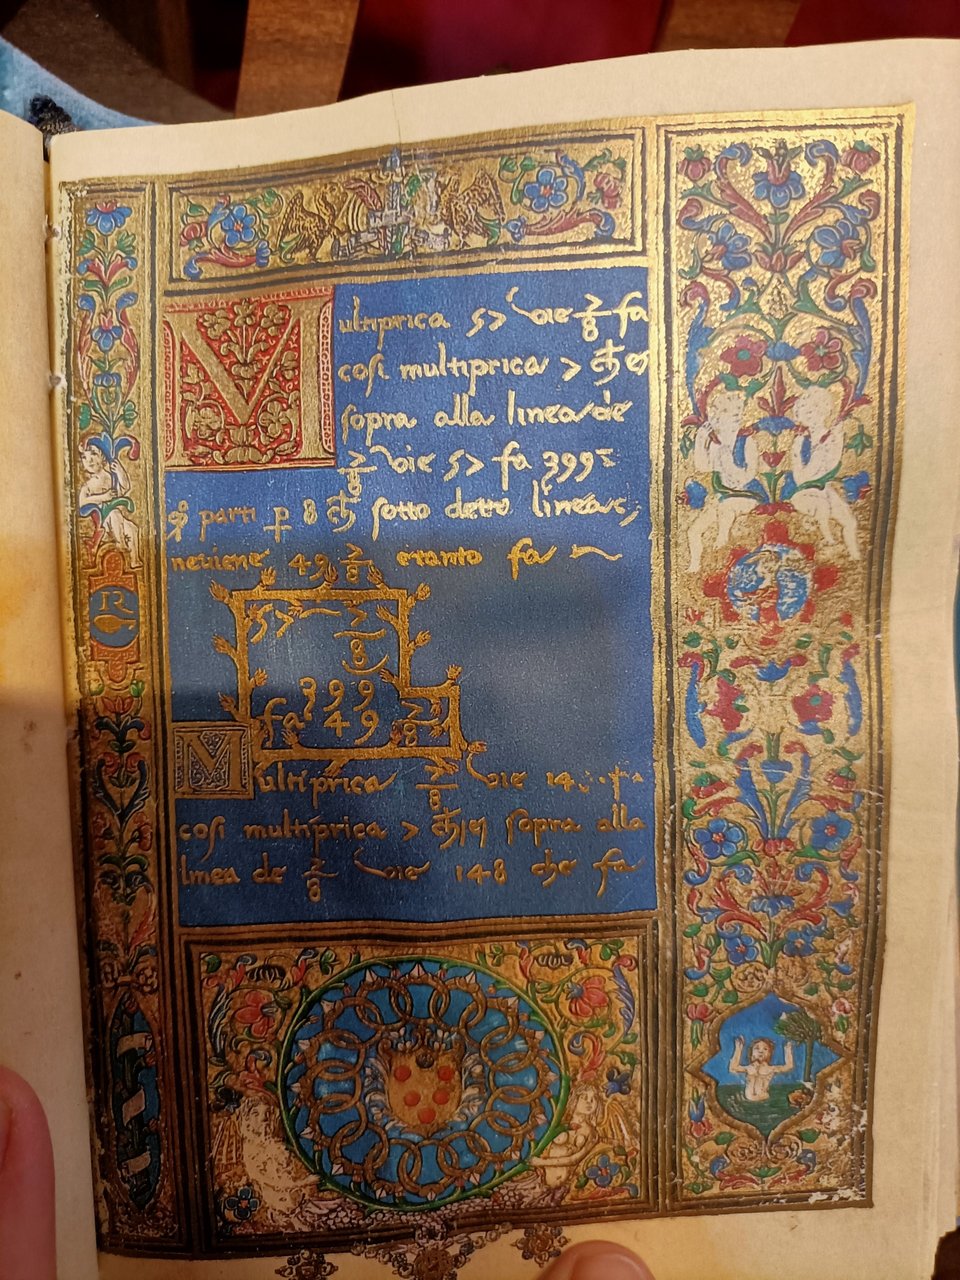 Multiprica 57 vie 7/8 fa
cosi multiprica 7 che
sopra alla linea de
7/8 vie 57 fa 399
parti p 8 che sotto detta linea
neviene 49 7/8 etanto fa
57 7/8
399
fa 49 7/8
Multiprica 7/8 vie fa
cosi multiprica 7 sopra alla
linea de 7/8 vie 148 che fa